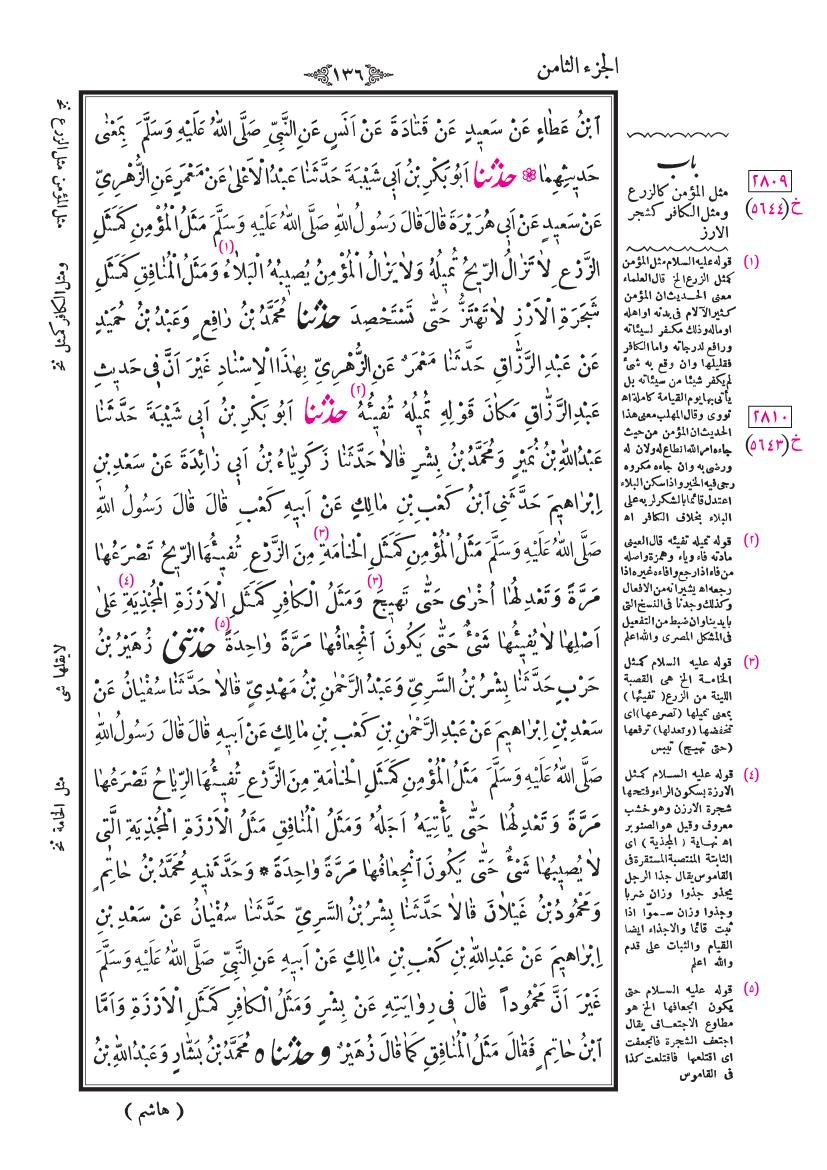 الجزء الثامن
١٣٦
ابْنُ عَطَاءٍ عَنْ سَعِيدٍ عَنْ قَتَادَةَ عَنْ أَنَسٍ عَنِ النَّبِيِّ صَلَّى اللهُ عَلَيْهِ وَسَلَّمَ بِمَعْنَى
حَدِيثِهِمَا ❁ حَدَّثَنَا اَبُو بَكْرِ بْنُ اَبِي شَيْبَةَ حَدَّثَنَا عَبْدُ الْاَعْلَى عَنْ مَعْمَرٍ عَنِ الزُّهْرِيِّ
عَنْ سَعِيدٍ عَنْ اَبِي هُرَيْرَةَ قَالَ قَالَ رَسُولُ اللهِ صَلَّى اللهُ عَلَيْهِ وَسَلَّمَ مَثَلُ الْمُؤْمِنِ كَمَثَلِ
الزَّرْعِ لَا تَزَالُ الرِّيحُ تُمِيلُهُ وَلَا يَزَالُ الْمُؤْمِنُ يُصِيبُهُ الْبَلَاءُ (١) وَمَثَلُ الْمُنَافِقِ كَمَثَلِ
شَجَرَةِ الْاَرْزِ لَا تَهْتَزُّ حَتَّى تَسْتَحْصِدَ حَدَّثَنَا مُحَمَّدُ بْنُ رَافِعٍ وَعَبْدُ بْنُ حُمَيْدٍ
عَنْ عَبْدِ الرَّزَّاقِ حَدَّثَنَا مَعْمَرٌ عَنِ الزُّهْرِيِّ بِهٰذَا الْاِسْنَادِ غَيْرَ اَنَّ فِي حَدِيثِ
عَبْدِ الرَّزَّاقِ مَكَانَ قَوْلِهِ تُمِيلُهُ تُفِيئُهُ (٢) حَدَّثَنَا اَبُو بَكْرِ بْنُ اَبِي شَيْبَةَ حَدَّثَنَا
عَبْدُ اللهِ بْنُ نُمَيْرٍ وَمُحَمَّدُ بْنُ بِشْرٍ قَالَا حَدَّثَنَا زَكَرِيَّاءُ بْنُ اَبِي زَائِدَةَ عَنْ سَعْدِ بْنِ
اِبْرَاهِيمَ حَدَّثَنِي ابْنُ كَعْبِ بْنِ مَالِكٍ عَنْ اَبِيهِ كَعْبٍ قَالَ قَالَ رَسُولُ اللهِ
صَلَّى اللهُ عَلَيْهِ وَسَلَّمَ مَثَلُ الْمُؤْمِنِ كَمَثَلِ الْخَامَةِ (٣) مِنَ الزَّرْعِ تُفِيئُهَا الرِّيحُ تَصْرَعُهَا
مَرَّةً وَتَعْدِلُهَا اُخْرَى حَتَّى تَهِيجَ (٣) وَمَثَلُ الْكَافِرِ كَمَثَلِ الْاَرْزَةِ الْمُجْذِيَةِ (٤) عَلَى
اَصْلِهَا لَا يُفِيئُهَا شَيْءٌ حَتَّى يَكُونَ انْجِعَافُهَا مَرَّةً وَاحِدَةً (٥) حَدَّثَنِي زُهَيْرُ بْنُ
حَرْبٍ حَدَّثَنَا بِشْرُ بْنُ السَّرِيِّ وَعَبْدُ الرَّحْمٰنِ بْنُ مَهْدِيٍّ قَالَا حَدَّثَنَا سُفْيَانُ عَنْ
سَعْدِ بْنِ اِبْرَاهِيمَ عَنْ عَبْدِ الرَّحْمٰنِ بْنِ كَعْبِ بْنِ مَالِكٍ عَنْ اَبِيهِ قَالَ قَالَ رَسُولُ اللهِ
صَلَّى اللهُ عَلَيْهِ وَسَلَّمَ مَثَلُ الْمُؤْمِنِ كَمَثَلِ الْخَامَةِ مِنَ الزَّرْعِ تُفِيئُهَا الرِّيَاحُ تَصْرَعُهَا
مَرَّةً وَتَعْدِلُهَا حَتَّى يَأْتِيَهُ اَجَلُهُ وَمَثَلُ الْمُنَافِقِ مَثَلُ الْاَرْزَةِ الْمُجْذِيَةِ الَّتِي
لَا يُصِيبُهَا شَيْءٌ حَتَّى يَكُونَ انْجِعَافُهَا مَرَّةً وَاحِدَةً * وَحَدَّثَنِيهِ مُحَمَّدُ بْنُ حَاتِمٍ
وَمَحْمُودُ بْنُ غَيْلَانَ قَالَا حَدَّثَنَا بِشْرُ بْنُ السَّرِيِّ حَدَّثَنَا سُفْيَانُ عَنْ سَعْدِ بْنِ
اِبْرَاهِيمَ عَنْ عَبْدِ اللهِ بْنِ كَعْبِ بْنِ مَالِكٍ عَنْ اَبِيهِ عَنِ النَّبِيِّ صَلَّى اللهُ عَلَيْهِ وَسَلَّمَ
غَيْرَ اَنَّ مَحْمُوداً قَالَ فِي رِوَايَتِهِ عَنْ بِشْرٍ وَمَثَلُ الْكَافِرِ كَمَثَلِ الْاَرْزَةِ وَاَمَّا
ابْنُ حَاتِمٍ فَقَالَ مَثَلُ الْمُنَافِقِ كَمَا قَالَ زُهَيْرٌ وَحَدَّثَنَاه مُحَمَّدُ بْنُ بَشَّارٍ وَعَبْدُ اللهِ بْنُ
( هاشم )
باب
مثل المؤمن كالزرع
ومثل الكافر كشجر
الارز
٢٨٠٩
خ (٥٦٤٤)
٢٨١٠
خ (٥٦٤٣)
(١) قوله عليه السلام مثل المؤمن
كمثل الزرع الخ قال العلماء
معنى الحديث ان المؤمن
كثير الآلام فى بدنه او اهله
او ماله وذلك مكفر لسيئاته
ورافع لدرجاته واما الكافر
فقليلها وان وقع به شئ
لم يكفر شيئا من سيئاته بل
يأتى بها يوم القيامة كاملة اه
نووى وقال المهلب معنى هذا
الحديث ان المؤمن من حيث
جاءه امر الله انطاع له ولان له
ورضى به وان جاءه مكروه
رجى فيه الخير واذا سكن البلاء
اعتدل قائما بالشكر لربه على
البلاء بخلاف الكافر اه
(٢) قوله تميله تفيئه قال العينى
مادته فاء وياء وهمزة واصله
من فاء اذا رجع وافاءه غيره اذا
رجعه اه يشير انه من الافعال
وكذلك وجدنا فى النسخ التى
بايدينا وان ضبط من التفعيل
فى المشكل المصرى والله اعلم
(٣) قوله عليه السلام كمثل
الخامة الخ هى القصبة
اللينة من الزرع (تفيئها)
بمعنى تميلها (تصرعها) اى
تخفضها (وتعدلها) ترفعها
(حتى تهيج) تيبس
(٤) قوله عليه السلام كمثل
الارزة بسكون الراء وفتحها
شجرة الارزن وهو خشب
معروف وقيل هو الصنوبر
اه نهاية (المجذية) اى
الثابتة المنتصبة المستقرة فى
القاموس يقال جذا الرجل
يجذو جذوا وزان ضربا
وجذوا وزان سموّا اذا
ثبت قائما والاجذاء ايضا
القيام والثبات على قدم
والله اعلم
(٥) قوله عليه السلام حتى
يكون انجعافها الخ هو
مطاوع الاجتعاف يقال
اجتعف الشجرة فانجعفت
اى اقتلعها فاقتلعت كذا
فى القاموس
مثل المؤمن مثل الزرع نخ
ومثل الكافر كمثل نخ
لا يقلها شى
مثل الخامة نخ